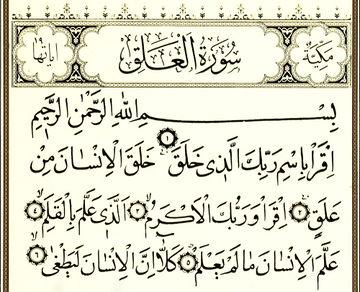 مكية سورة العلق اياتها
بِسْمِ اللهِ الرَّحْمٰنِ الرَّحِيمِ
اِقْرَأْ بِاسْمِ رَبِّكَ الَّذِى خَلَقَ ١ خَلَقَ الْاِنْسَانَ مِنْ
عَلَقٍ ٢ اِقْرَأْ وَرَبُّكَ الْاَكْرَمُ ٣ اَلَّذِى عَلَّمَ بِالْقَلَمِ ٤
عَلَّمَ الْاِنْسَانَ مَا لَمْ يَعْلَمْ ٥ كَلَّا اِنَّ الْاِنْسَانَ لَيَطْغٰى ٦